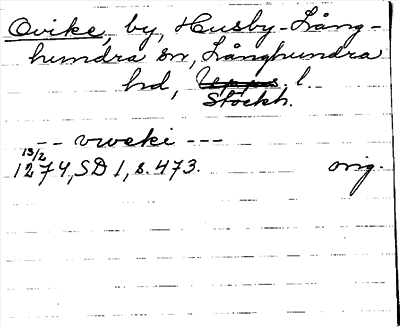 Ovike, by, Husby-Lång-
hundra sn, Långhundra
hd, Upps. l.
Stockh.
-- vweki ---
13/2
1274, SD 1, s. 473. orig.